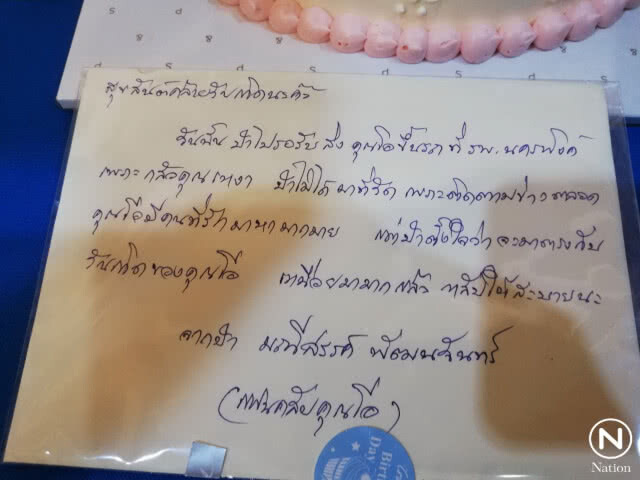 สุขสันต์คล้ายวันเกิดนะคะ
วันนั้น ป้าไปรอรับ ส่ง คุณโอขึ้นรถ ที่ รพ. นครพิงค์
เพราะ กลัวคุณเหงา ป้าไม่ได้ มาที่วัด เพราะติดตามข่าวตลอด
คุณโอมีคนที่รัก มาหา มากมาย แต่ป้าตั้งใจว่า จะมาตรงกับ
วันเกิดของคุณโอ เหนื่อยมามาก แล้ว หลับให้สบายนะ
จากป้า มณีสรรค์ พัฒนจันทร์
(แฟนคลับคุณโอ)
Birth
Day
N
Nation